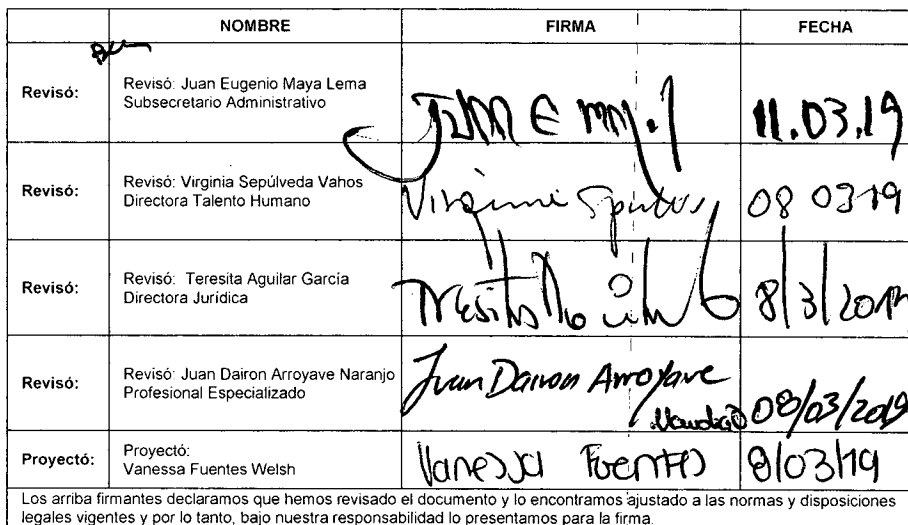 NOMBRE FIRMA FECHA
Revisó: Revisó: Juan Eugenio Maya Lema
Subsecretario Administrativo
11.03.19
Revisó: Revisó: Virginia Sepúlveda Vahos
Directora Talento Humano
Virginia 08 03 19
Revisó: Revisó: Teresita Aguilar García
Directora Jurídica
8/3/2019
Revisó: Revisó: Juan Dairon Arroyave Naranjo
Profesional Especializado
Juan Dairon Arroyave
08/03/2019
Proyectó: Proyectó:
Vanessa Fuentes Welsh
Vanessa Fuentes 8/03/19
Los arriba firmantes declaramos que hemos revisado el documento y lo encontramos ajustado a las normas y disposiciones
legales vigentes y por lo tanto, bajo nuestra responsabilidad lo presentamos para la firma.